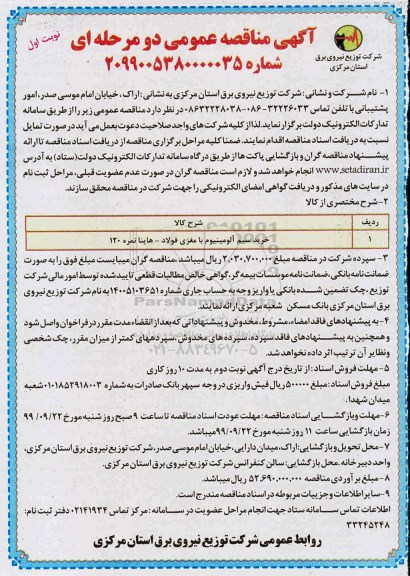 نوبت اول
آگهی مناقصه عمومی دو مرحله ای
شماره ۲۰۹۹۰۰۵۳۸۰۰۰۰۰۳۵
شرکت توزیع نیروی برق
استان مرکزی
۱- نام شرکت و نشانی: شرکت توزیع نیروی برق استان مرکزی به نشانی: اراک، خیابان امام موسی صدر، امور
پشتیبانی با تلفن تماس ۳۲۲۲۶۰۳۳-۰۸۶ -۰۸۶۳۲۲۲۸۰۳۸ در نظر دارد مناقصه عمومی زیر را از طریق سامانه
تدارکات الکترونیک دولت برگزار نماید. لذا از کلیه شرکت های واجد صلاحیت دعوت بعمل می آید در صورت تمایل
نسبت به دریافت اسناد مناقصه اقدام نمایند. ضمنا کلیه مراحل برگزاری مناقصه از دریافت اسناد مناقصه تا ارائه
پیشنهاد مناقصه گران و بازگشایی پاکت ها از طریق درگاه سامانه تدارکات الکترونیک دولت (ستاد) به آدرس
www.setadiran.ir انجام خواهد شد و لازم است مناقصه گران در صورت عدم عضویت قبلی، مراحل ثبت نام
در سایت های مذکور و دریافت گواهی امضای الکترونیکی را جهت شرکت در مناقصه محقق سازند.
۲- شرح مختصری از کالا
ردیف شرح کالا
۱ خرید سیم آلومینیوم با مغزی فولاد - هاینا نمره ۱۲۰
۳- سپرده شرکت در مناقصه مبلغ ۲،۰۳۰،۷۰۰،۰۰۰ ریال میباشد. مناقصه گران میبایست مبلغ فوق را به صورت
ضمانت نامه بانکی، ضمانت نامه موسسات بیمه گر، گواهی خالص مطالبات قطعی تایید شده توسط امور مالی شرکت
توزیع، چک تضمین شده بانکی یا واریز وجه به حساب جاری شماره ۱۴۰۰۵۱۰۳۶۵۱ به نام شرکت توزیع نیروی
برق استان مرکزی بانک مسکن شعبه مرکزی ارائه نمایند.
۴- به پیشنهادهای فاقد امضاء، مشروط، مخدوش و پیشنهاداتی که بعد از انقضاء مدت مقرر در فراخوان واصل شود
و همچنین به پیشنهادهای فاقد سپرده، سپرده های مخدوش، سپردههای کمتر از میزان مقرر، چک شخصی
و نظایر آن ترتیب اثر داده نخواهد شد.
۵- مهلت فروش اسناد: از تاریخ درج آگهی نوبت دوم به مدت ۱۰ روز کاری
مبلغ فروش اسناد: مبلغ ۵۰۰۰۰۰ ریال فیش واریزی در وجه سپهر بانک صادرات به شماره ۰۱۰۱۸۵۲۹۱۸۰۰۳ شعبه
میدان شهدا.
۶- مهلت و بازگشایی اسناد مناقصه: مهلت عودت اسناد مناقصه تا ساعت ۹ صبح روز شنبه مورخ ۹۹/۰۹/۲۲
زمان بازگشایی ساعت ۱۱ روز شنبه مورخ ۹۹/۰۹/۲۲ میباشد.
۷- محل تحویل و بازگشایی: اراک، میدان دارایی، خیابان امام موسی صدر، شرکت توزیع نیروی برق استان مرکزی،
واحد دبیرخانه. محل بازگشایی: سالن کنفرانس شرکت توزیع نیروی برق استان مرکزی.
۸- مبلغ برآوردی مناقصه ۵۲،۶۹۰،۰۰۰،۰۰۰ ریال میباشد.
۹- سایر اطلاعات و جزییات مربوطه در اسناد مناقصه مندرج است.
اطلاعات تماس سامانه ستاد جهت انجام مراحل عضویت در سامانه: مرکز تماس ۰۲۱۴۱۹۳۴ دفتر ثبت نام:
۳۳۲۴۵۲۴۸
روابط عمومی شرکت توزیع نیروی برق استان مرکزی